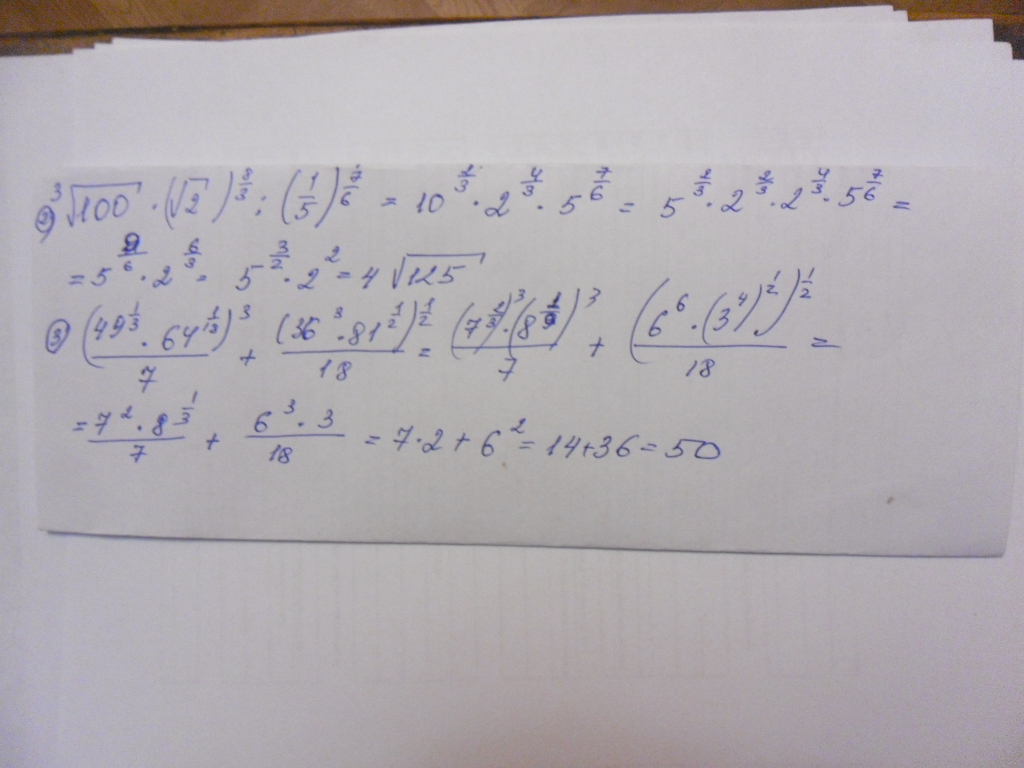 ② ∛100 · (√2)^(8/3) : (1/5)^(7/6) = 10^(2/3) · 2^(4/3) · 5^(7/6) = 5^(2/3) · 2^(2/3) · 2^(4/3) · 5^(7/6) =
= 5^(9/6) · 2^(6/3) = 5^(3/2) · 2^2 = 4 √125
③ (49^(1/3) · 64^(1/9))^3 / 7 + (36^3 · 81^(1/2))^(1/2) / 18 = (7^(2/3))^3 · (8^(1/9))^3 / 7 + (6^6 · (3^4)^(1/2))^(1/2) / 18 =
= 7^2 · 8^(1/3) / 7 + 6^3 · 3 / 18 = 7 · 2 + 6^2 = 14 + 36 = 50